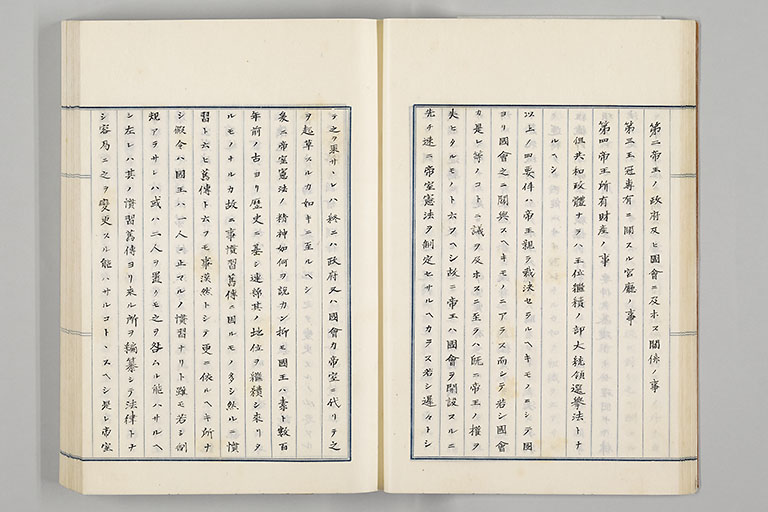 第二帝王ノ政府及ヒ國會ニ及ホス關係ノ事
第三王冠專有ニ關スル官廳ノ事
第四帝王所有財産ノ事
但共和政體ナラハ王位繼續ノ部大統領選擧法トナ
ルヘシ
以上ノ四要件ハ帝王親ラ裁決セラルヘキモノニシテ國
ヨリ國會之ニ關與スヘキモノニアラス而シテ若シ國會
カ是レ等ノコトニ議ヲ及ホスニ至ラハ既ニ帝王ノ權ヲ
失ヒタルモノト云フヘシ故ニ帝王ハ國會ヲ開設スルニ
先チ速ニ帝室憲法ヲ制定セサルヘカラス若シ遲々トシ
テ之ヲ果サヽレハ終ニハ政府又ハ國會カ帝室ニ代リテ之
ヲ起草スルカ如キニ至ルヘシ
爰ニ帝室憲法ノ精神如何ヲ說カン抑モ國王ハ素ト數百
年前ノ古ヨリ歷史ニ基シ連綿其ノ地位ヲ繼續シ來リタ
ルモノナルカ故ニ事慣習舊傳ニ因ルモノ多シ然ルニ慣
習ト云ヒ舊傳ト云フモ事漠然トシテ更ニ依ルヘキ所ナ
シ假令ハ國王ハ一人ニ止マルノ慣習ナリト雖モ若シ制
規アラサレハ或ハ二人ヲ置クモ之ヲ咎ムル能ハサルヘ
シ左レハ其ノ慣習舊傳ヨリ來ル所ヲ編纂シテ法律トナ
シ容易ニ之ヲ變更スル能ハサルコトヽスヘシ是レ帝室